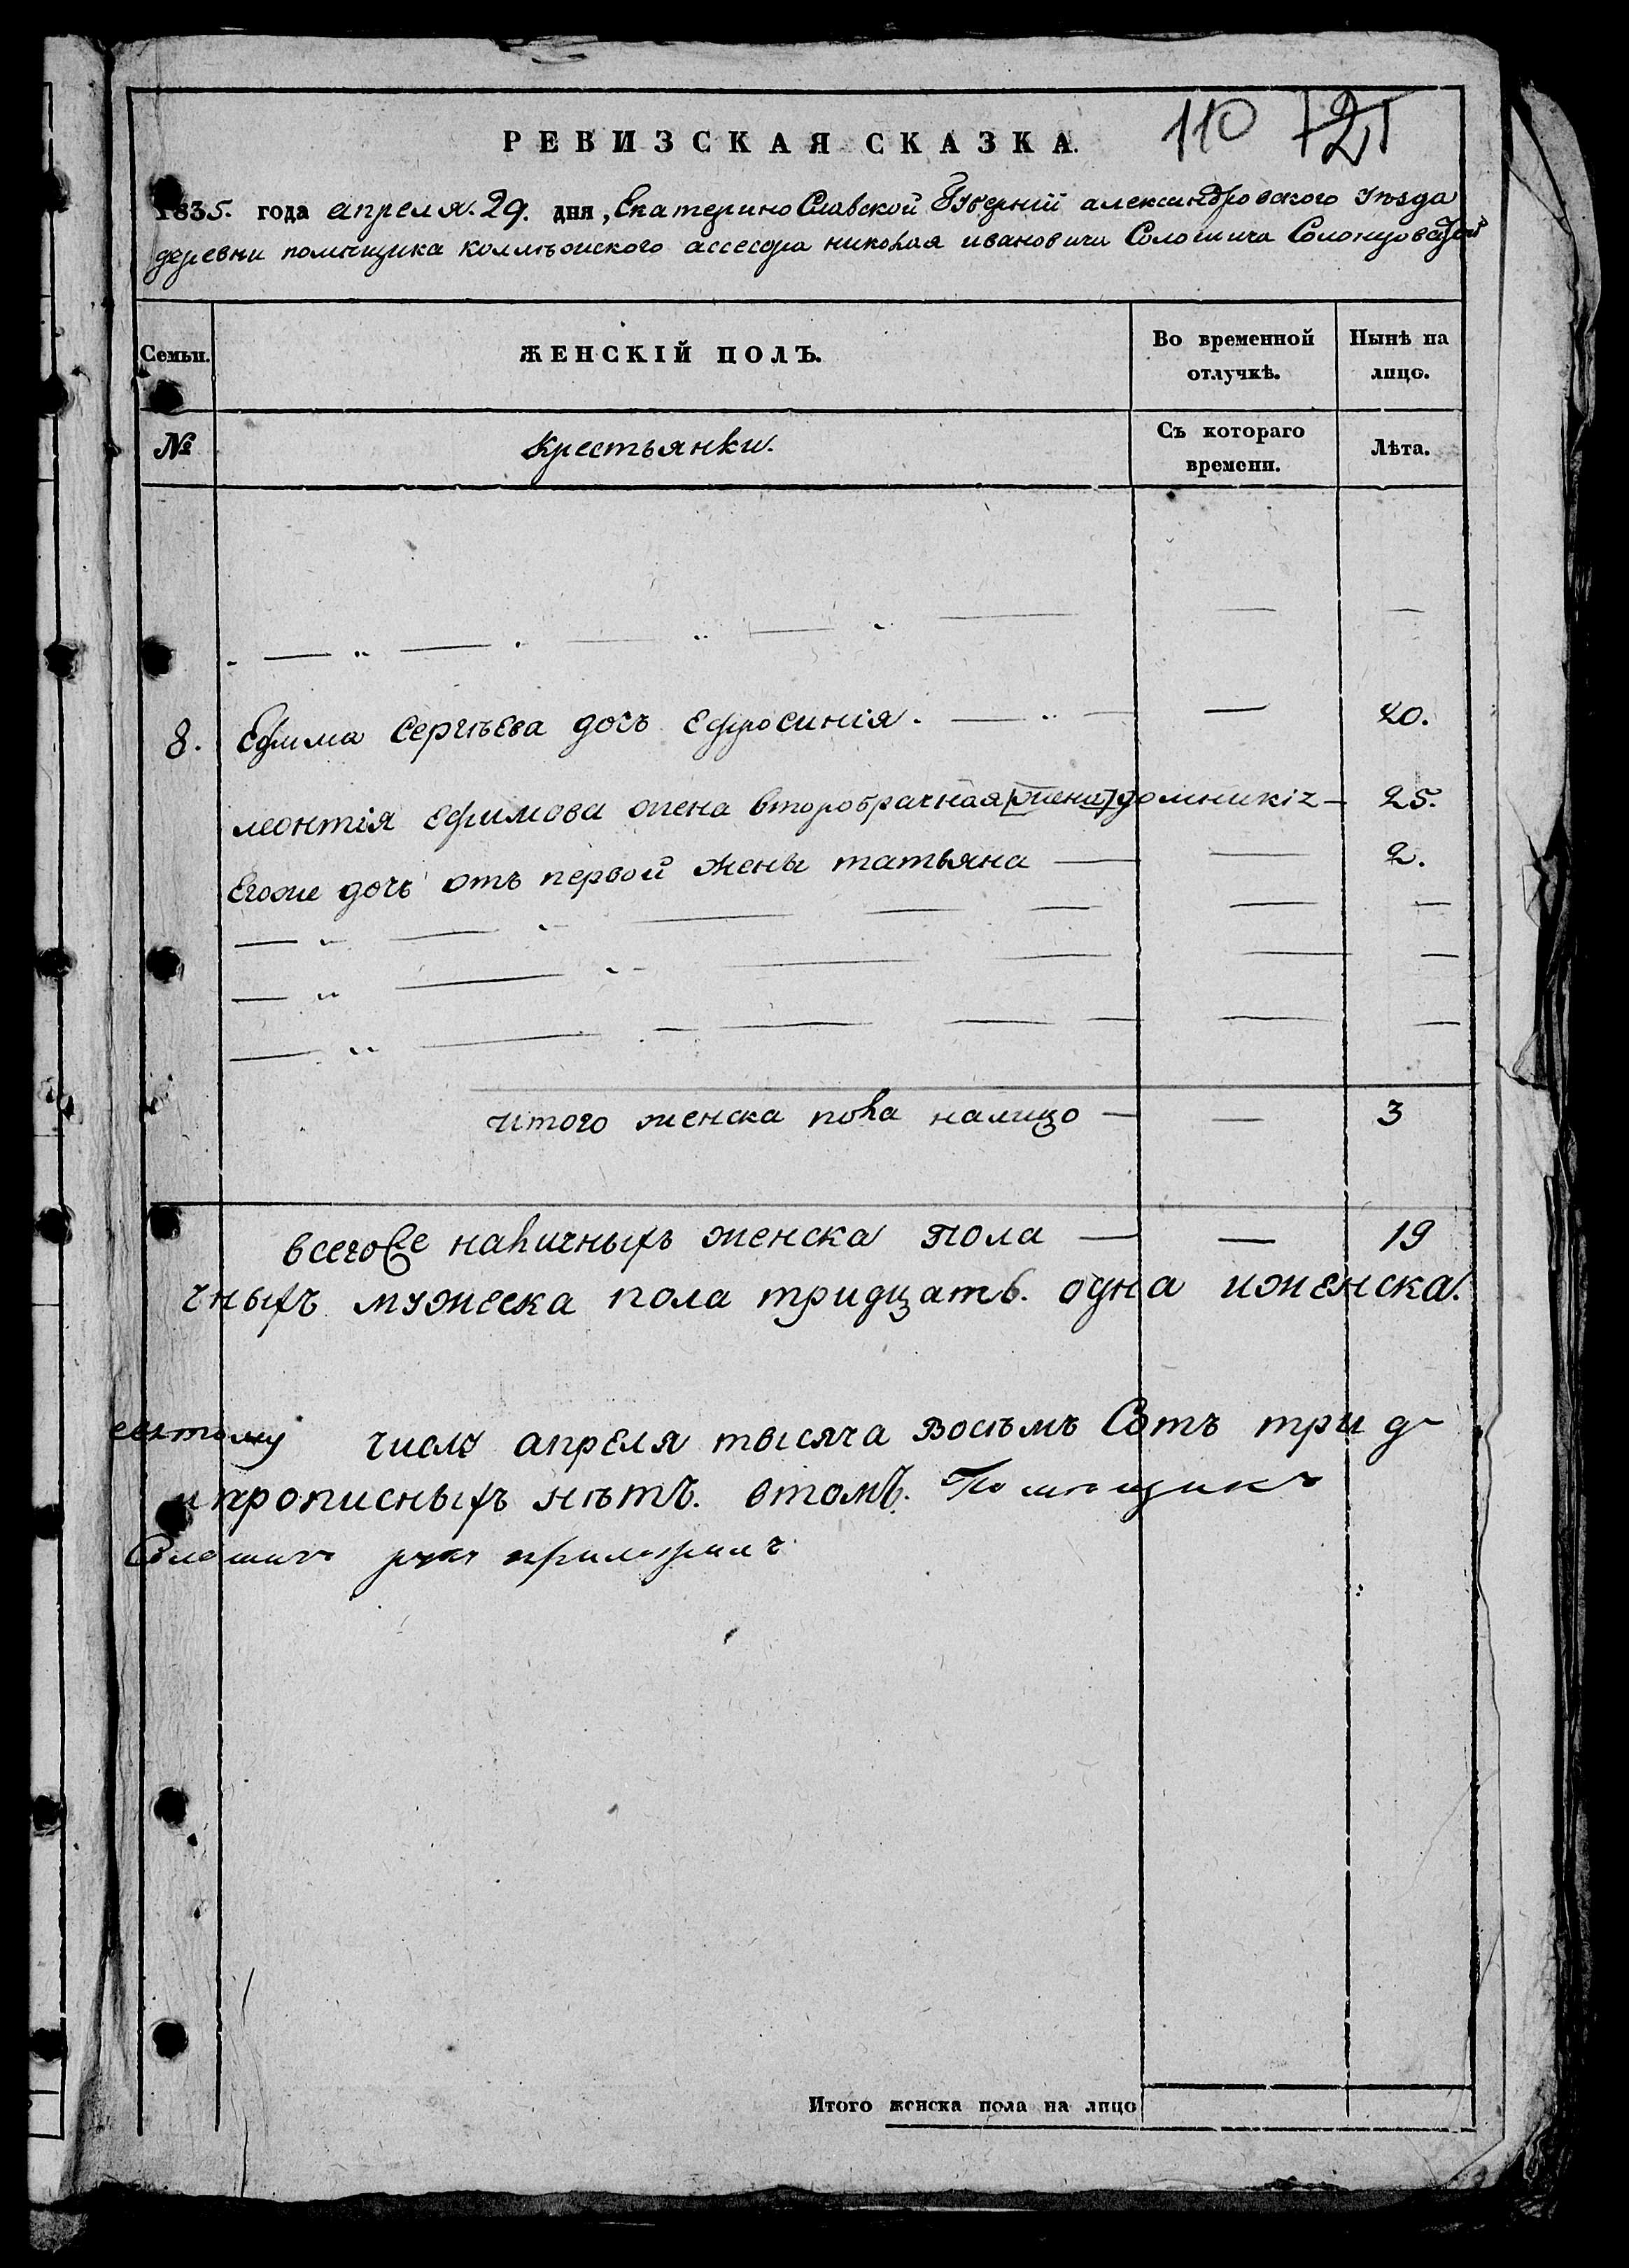 110 121
РЕВИЗСКАЯ СКАЗКА.
1835. года апреля. 29. дня, Екатерино Славской Губернїи александровского уѣзда
деревни помѣщика коллѣжского ассесора николая ивановича Солошича Солонцоватой
Семьи. ЖЕНСКІЙ ПОЛЪ. Во временной отлучкѣ. Нынѣ на лицо.
№ Крестьянки. Съ котораго времени. Лѣта.
8. Ефима Сергѣева дочь Ефросинія. — — 20.
леонтія Ефимова жена второбрачная [жена] домникія — 25.
Егоже дочь отъ первой жены татьяна — — 2.
Итого женска пола налицо — — 3
всего Се наличныхъ женска пола — — 19
чныхъ мужеска пола тридцать. одна иженска.
числу апреля тысяча Восьмъ Сотъ трид
ипрописныхъ нѣтъ. втомъ. Помещикъ
Солошичъ руку приложилъ
Итого женска пола на лицо